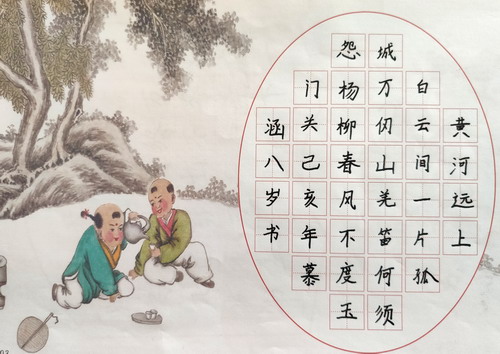 黄河远上
白云间一片孤
城万仞山羌笛何须
怨杨柳春风不度玉
门关己亥年慕
涵八岁书